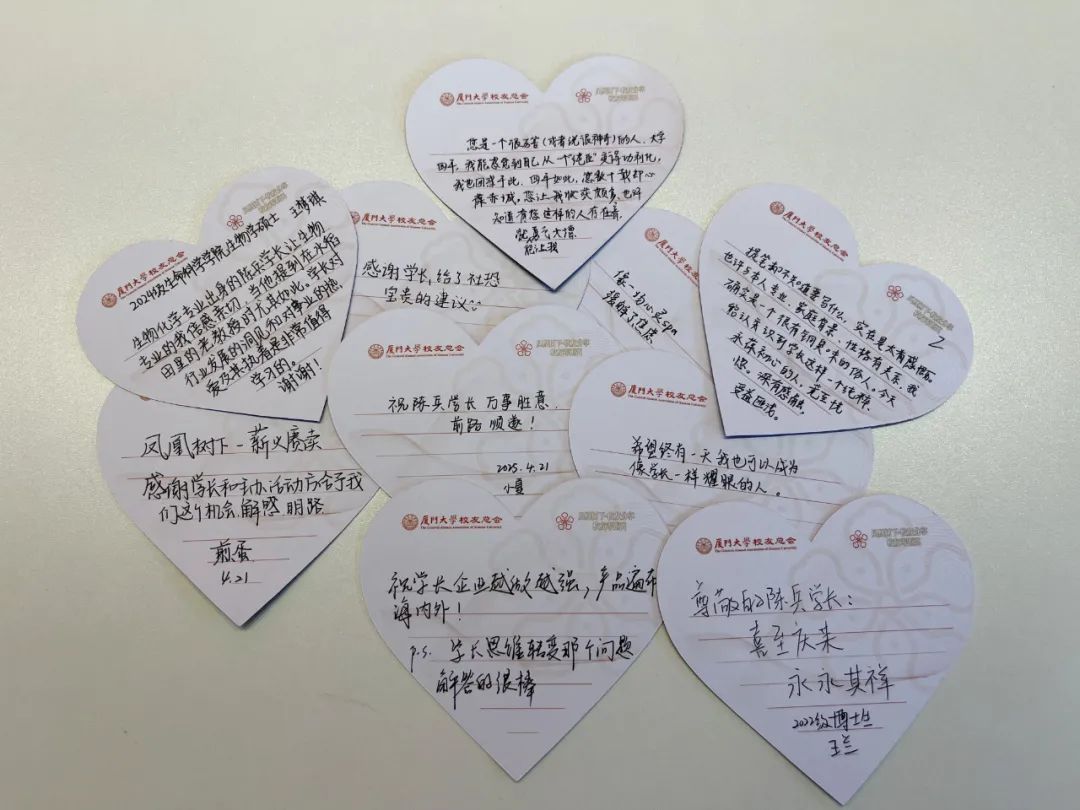 厦门大学校友总会
The General Alumni Association of Xiamen University
凤凰树下·校友分享
您是一个很厉害(或者说很神奇)的人,大学
四年,我能感觉到自己从一个"纯匠"变得功利化,
我也困惑于此,四年如此,您数十载却心
怀赤诚,您让我收获颇多,也许
知道有您这样的人存在着,
就能让我勇气大增
2024级生命科学学院生物学硕士 王梦琪
厦门大学校友总会
生物化学专业出身的陈兵学长让生物
专业的我倍感亲切,当他提到在水稻
田里的老教授时尤其如此。学长对
行业发展的洞见和对事业的热
爱及其执着是非常值得
学习的。
谢谢!
厦门大学校友总会
感谢学长,给了社恐
宝贵的建议
厦门大学校友总会
像一场心灵spa
缓解了焦虑
厦门大学校友总会
提笔却不知
也许与本人专业、家庭背景、性格有关系,我
确实是个很有
给认真
永葆初心的人,
您,深有感触,
受益匪浅。
厦门大学校友总会
祝陈兵学长 万事胜意,
前路顺遂!
2025.4.21
小夏
厦门大学校友总会
希望终有一天我也可以成为
像学长一样耀眼的人。
凤凰树下-薪火赓续
感谢学长和主办活动方给予我
们这个机会解惑、明路
煎蛋
4.21
厦门大学校友总会
The General Alumni Association of Xiamen University
祝学长企业越做越强,产品遍布
海内外!
p.s. 学长思维转变那个问题
解答的很棒
厦门大学校友总会
The General Alumni Association of Xiamen University
尊敬的陈兵学长:
喜至庆来
永永其祥
2022级博士生
王兰